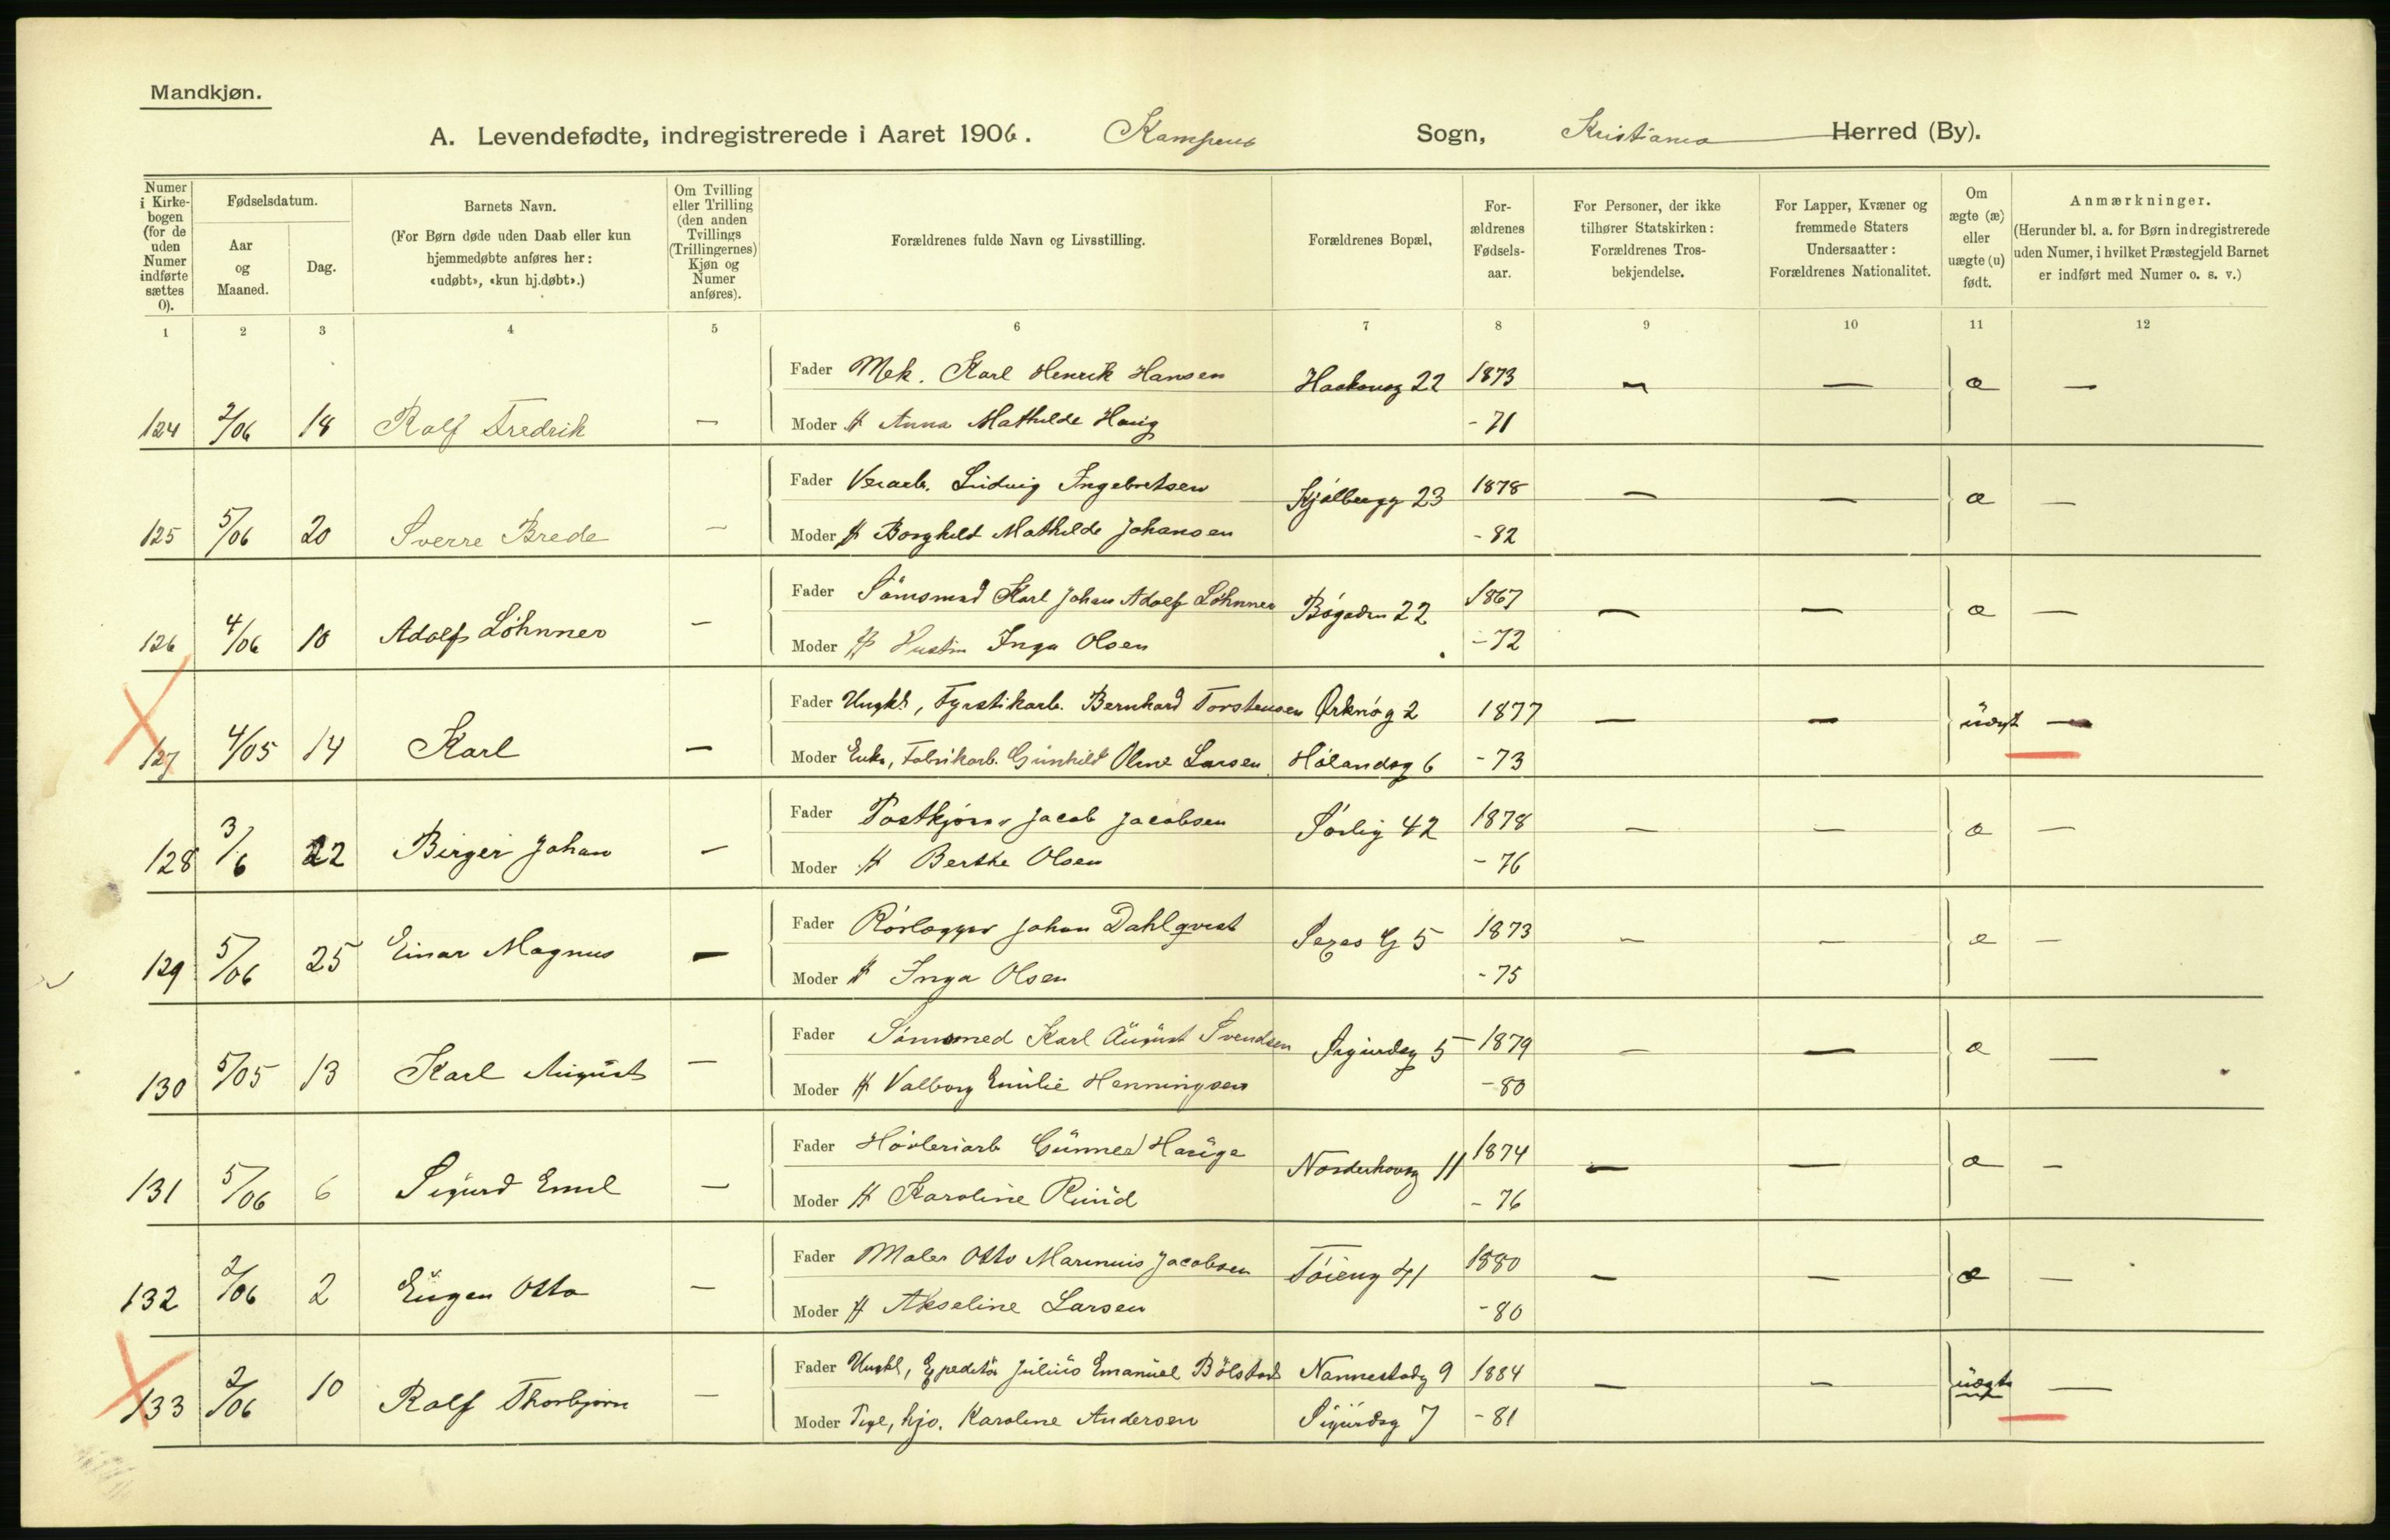 Mandkjøn.
A. Levendefødte, indregistrerede i Aaret 1906. Kampens Sogn, Kristiania Herred (By).
Numer i Kirkebogen (for de uden Numer indførte sættes 0).
Fødselsdatum.
Aar og Maaned.
Dag.
Barnets Navn.
(For Børn døde uden Daab eller kun hjemmedøbte anføres her: «udøbt», «kun hj.døbt».)
Om Tvilling eller Trilling (den anden Tvillings (Trillingernes) Kjøn og Numer anføres).
Forældrenes fulde Navn og Livsstilling.
Forældrenes Bopæl,
Forældrenes Fødselsaar.
For Personer, der ikke tilhører Statskirken: Forældrenes Trosbekjendelse.
For Lapper, Kvæner og fremmede Staters Undersaatter: Forældrenes Nationalitet.
Om ægte (æ) eller uægte (u) født.
Anmærkninger.
(Herunder bl. a. for Børn indregistrerede uden Numer, i hvilket Præstegjeld Barnet er indført med Numer o. s. v.)
1 2 3 4 5 6 7 8 9 10 11 12
Fader Mek. Karl Henrik Hansen Haakonsg 22 1873 — — æ —
124 2/06 18 Ralf Fredrik — Moder H Anna Mathilde Haug - 71
Fader Verarb. Ludvig Ingebretsen Kjølbergg 23 1878 — — æ —
125 5/06 20 Sverre Brede — Moder H Borghild Mathilde Johansen - 82
Fader Sömsmed Karl Johan Adolf Löhnner Bøgaden 22 1867 — — æ —
126 4/06 10 Adolf Löhnner — Moder H Inga Olsen - 72
Fader Ungk., Fyrstikarb. Bernhard Torstensen Orknøg 2 1877 — — uægt —
127 4/05 14 Karl — Moder Enke, Fabrikarb. Gunhild Oline Larsen Hølandsg 6 - 73
Fader Postkjörer Jacob Jacobsen Sørlig 42 1878 — — æ —
128 3/6 22 Birger Johan — Moder H Berthe Olsen - 76
Fader Rörlægger Johan Dahlqvist Sexes G 5 1873 — — æ —
129 5/06 25 Einar Magnus — Moder H Inga Olsen - 75
Fader Sömsmed Karl August Svendsen Sigurdsg 5 1879 — — æ —
130 5/05 13 Karl August — Moder H Valborg Emilie Henningsen - 80
Fader Hövleriarb Gunner Hauge Norderhovsg 11 1874 — — æ —
131 5/06 6 Sigurd Emil — Moder H Karoline Ruud - 76
Fader Maler Otto Marinius Jacobsen Töieng 41 1880 — — æ —
132 2/06 2 Eugen Otto — Moder H Akseline Larsen - 80
Fader Ungk., Expeditör Julius Emanuel Bölstad Nannestadg 9 1884 — — uægte —
133 2/06 10 Ralf Thorbjørn — Moder Pige, hjv. Karoline Andersen Sigurdsg 7 - 81